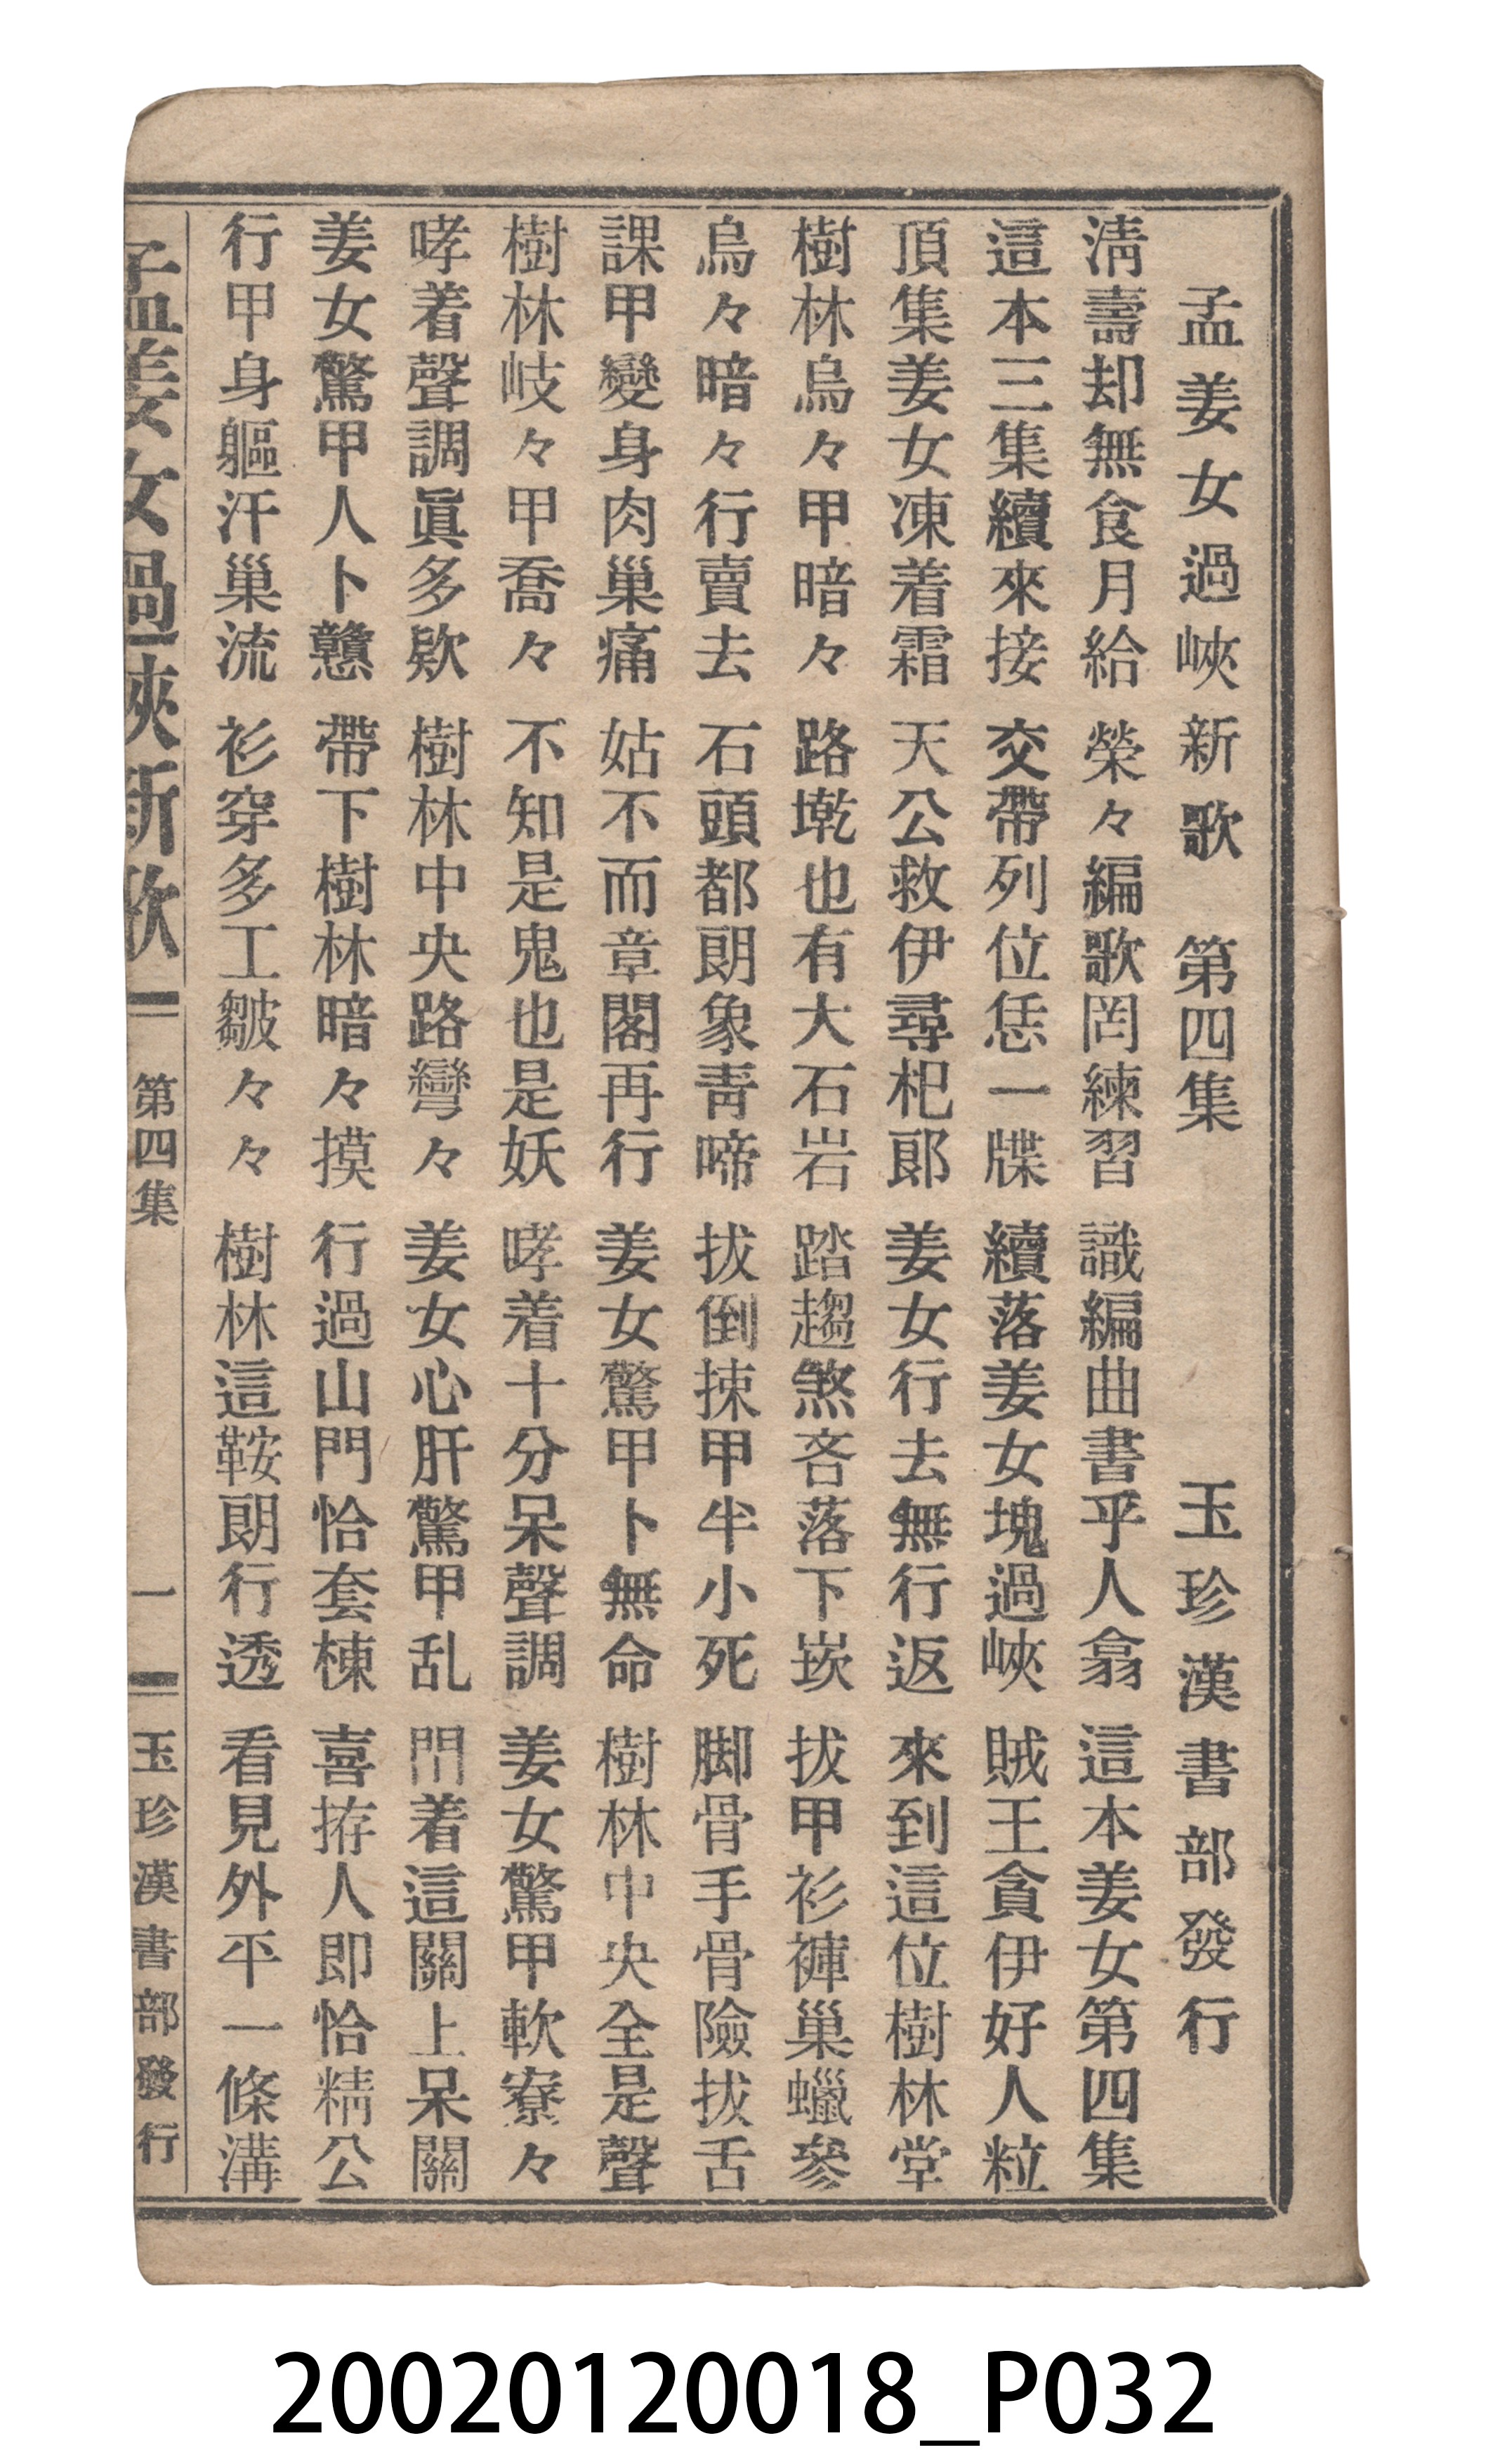 孟姜女過峽新歌 第四集 玉珍漢書部發行
淸壽却無食月給 榮々編歌罔練習 識編曲書乎人翕 這本姜女第四集
這本三集續來接 交帶列位恁一牒 續落姜女塊過峽 賊王貪伊好人粒
頂集姜女凍着霜 天公救伊尋杞郞 姜女行去無行返 來到這位樹林堂
樹林烏々甲暗々 路墘也有大石岩 踏趨煞吝落下崁 拔甲衫褲巢蠟參
烏々暗々行賣去 石頭都朗象靑啼 拔倒捒甲半小死 脚骨手骨險拔舌
課甲變身肉巢痛 姑不而章閣再行 姜女驚甲卜無命 樹林中央全是聲
樹林岐々甲喬々 不知是鬼也是妖 哮着十分呆聲調 姜女驚甲軟寮々
哮着聲調眞多欵 樹林中央路彎々 姜女心肝驚甲乱 門着這關上呆關
姜女驚甲人卜戇 帶下樹林暗々摸 行過山門恰套棟 喜拵人即恰精公
行甲身軀汗巢流 衫穿多工皺々々 樹林這鞍朗行透 看見外平一條溝
孟姜女過峽新歌 第四集 一 玉珍漢書部發行
20020120018_P032